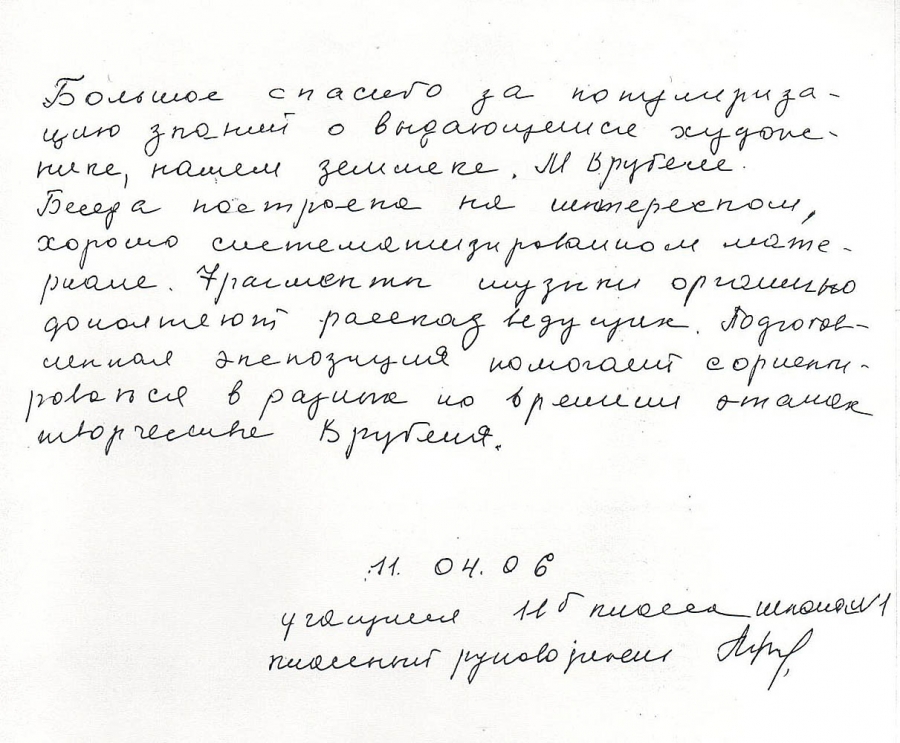 Большое спасибо за популяриза-
цию знаний о выдающемся худож-
нике, нашем земляке. М Врубеле.
Беседа построена на интересном,
хорошо систематизированном мате-
риале. Фрагменты музыки органично
дополняют рассказ ведущих. Подготов-
ленная экспозиция помогает сориенти-
роваться в разных по времени этапах
творчества Врубеля.
11. 04. 06
учащиеся 11б класса школы №1
классный руководитель